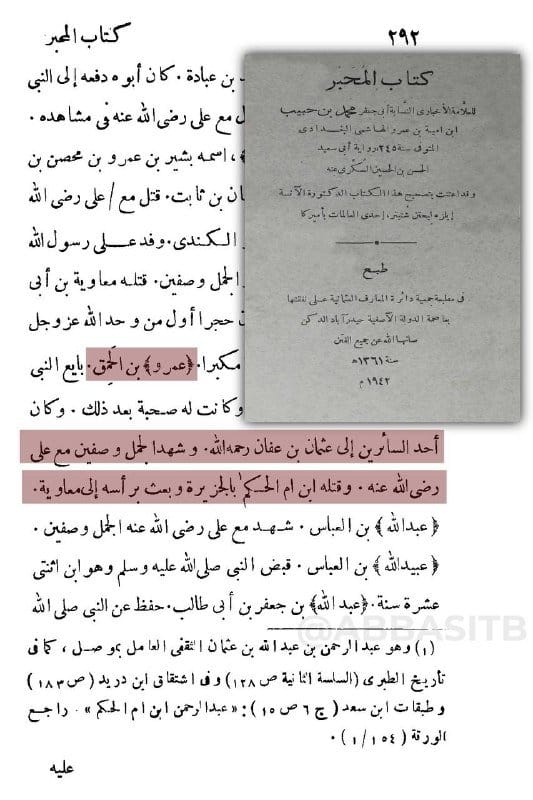 كتاب المحبر
٢٩٢
بن عبادة . كان أبوه دفعه إلى النبي
مع على رضى الله عنه فى مشاهده .
، اسمه بشير بن عمرو بن محصن بن
بن ثابت . قتل مع / على رضى الله
الكندى . وفد على رسول الله
الجمل وصفين . قتله معاوية بن أبى
حجرا أول من وحد الله عز وجل
مكبرا . ﴿عمرو﴾ بن الحمق . بايع النبي
وكانت له صحبة بعد ذلك . وكان
أحد السائرين إلى عثمان بن عفان رحمه الله . وشهد الجمل وصفين مع على
رضى الله عنه . وقتله ابن ام الحكم¹ بالجزيرة وبعث برأسه إلى معاوية .
﴿عبدالله﴾ بن العباس . شهد مع على رضى الله عنه الجمل وصفين .
﴿عبيدالله﴾ بن العباس . قبض النبي صلى الله عليه وسلم وهو ابن اثنتى
عشرة سنة . ﴿عبد الله﴾ بن جعفر بن أبى طالب . حفظ عن النبي صلى الله
(١) وهو عبد الرحمن بن عبد الله بن عثمان الثقفى العامل بموصل ، كما فى
تأريخ الطبرى (السلسة الثانية ص ١٢٨) وفى اشتقاق ابن دريد (ص ١٨٣)
وطبقات ابن سعد (ج ٦ ص ١٥) : «عبد الرحمن ابن ام الحكم» . راجع
الورقة (١٥٤ / ١) .
عليه
كتاب المُحَبَّر
للعلامة الأخبارى النسابة أبى جعفر محمد بن حبيب
ابن امية بن عمرو الهاشمى البغدادى
المتوفى سنة ٢٤٥ھ رواية أبى سعيد
الحسن بن الحسين السكرى عنه
وقد اعتنت بتصحيح هذا الكتاب الدكتورة الآنسة
إيلزه ليختن شتيتر ، إحدى العالمات بأميركا
طبع
فى مطبعة جمعية دائرة المعارف العثمانية على نفقتها
بعاصمة الدولة الآصفية حيدرآباد الدكن
صانها الله عن جميع الفتن
سنة ١٣٦١ھ
١٩٤٢ م
@ABBASITB